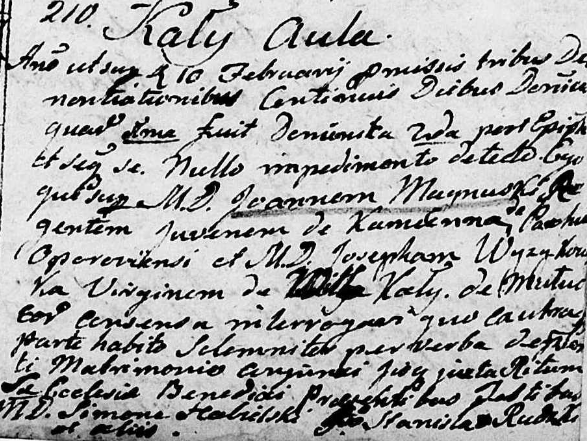 210. Kały Aula.
Anō ut sup. d 10 Februarij p̄missis tribus De
nontiationibus Continuis Diebus Domīcis
quar. Ima fuit Dominica 2da post Epiph
et seq. se. Nullo impedimento detecto Ego
qui sup. M.D. Joannem Magnuski Re
gentem Juvenem de Kamienna de Parochia
Oporoviensi et M.D. Josepham Wyzykows
ka Virginem de Kały. de mutuo
eor consensu interrogavi quo ca utraq
parte habito Solemniter per verba de
ti Matrimonio conjunxi juxta Ritum
Ecclesiæ Benedixi Præsentibus Testibus
M.D. Simone Stanislao
et aliis.